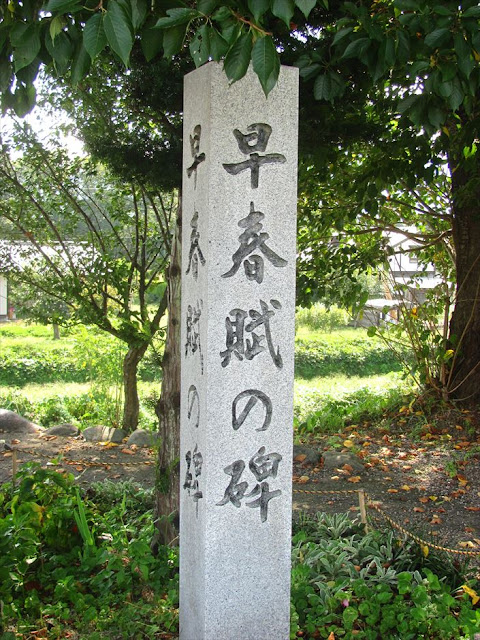 早春賦の碑
早春賦の碑